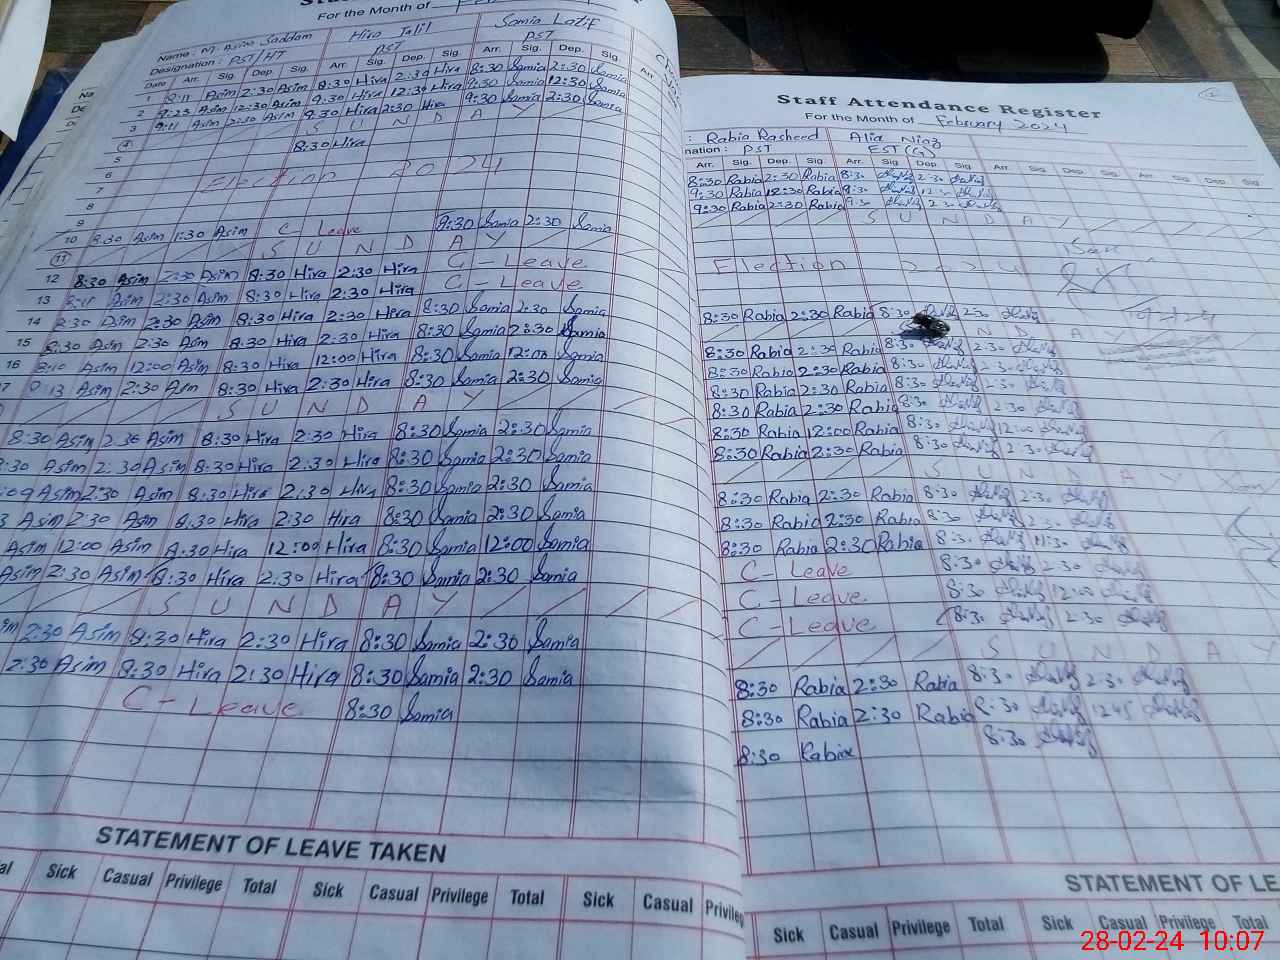 For the Month of
Name : M. Asim Saddam Hira Jalil Samia Latif
Designation : PST/HT PST PST
Date Arr. Sig. Dep. Sig. Arr. Sig. Dep. Sig. Arr. Sig. Dep. Sig. Arr
1 8:11 Asim 2:30 Asim 8:30 Hira 2:30 Hira 8:30 Samia 2:30 Samia
2 9:23 Asim 12:30 Asim 9:30 Hira 12:30 Hira 9:30 Samia 12:30 Samia
3 9:11 Asim 2:30 Asim 9:30 Hira 2:30 Hira 9:30 Samia 2:30 Samia
4 S U N D A Y
5 8:30 Hira
6
7 Election 2024
8
9
10 8:30 Asim 1:30 Asim C - Leave 9:30 Samia 2:30 Samia
11 S U N D A Y
12 8:30 Asim 2:30 Asim 8:30 Hira 2:30 Hira C - Leave
13 8:11 Asim 2:30 Asim 8:30 Hira 2:30 Hira C - Leave
14 8:30 Asim 2:30 Asim 8:30 Hira 2:30 Hira 8:30 Samia 2:30 Samia
15 8:30 Asim 2:30 Asim 8:30 Hira 2:30 Hira 8:30 Samia 2:30 Samia
16 8:10 Asim 12:00 Asim 8:30 Hira 12:00 Hira 8:30 Samia 12:00 Samia
17 8:13 Asim 2:30 Asim 8:30 Hira 2:30 Hira 8:30 Samia 2:30 Samia
S U N D A Y
8:30 Asim 2:30 Asim 8:30 Hira 2:30 Hira 8:30 Samia 2:30 Samia
:30 Asim 2:30 Asim 8:30 Hira 2:30 Hira 8:30 Samia 2:30 Samia
:09 Asim 2:30 Asim 8:30 Hira 2:30 Hira 8:30 Samia 2:30 Samia
Asim 2:30 Asim 8:30 Hira 2:30 Hira 8:30 Samia 2:30 Samia
Asim 12:00 Asim 8:30 Hira 12:00 Hira 8:30 Samia 12:00 Samia
Asim 2:30 Asim 8:30 Hira 2:30 Hira 8:30 Samia 2:30 Samia
S U N D A Y
2:30 Asim 8:30 Hira 2:30 Hira 8:30 Samia 2:30 Samia
2:30 Asim 8:30 Hira 2:30 Hira 8:30 Samia 2:30 Samia
C - Leave 8:30 Samia
STATEMENT OF LEAVE TAKEN
Sick Casual Privilege Total Sick Casual Privilege Total Sick Casual Privileg
Staff Attendance Register
For the Month of February 2024
: Rabia Rasheed Alia Niaz
nation : PST EST (G)
Arr. Sig. Dep. Sig. Arr. Sig. Dep. Sig. Arr. Sig. Dep. Sig. Arr. Sig. Dep. Sig.
8:30 Rabia 2:30 Rabia 8:30 2:30
9:30 Rabia 12:30 Rabia 9:30 12:30
9:30 Rabia 2:30 Rabia 9:30 2:30
S U N D A Y
Election 2024
8:30 Rabia 2:30 Rabia 8:30 2:30
N D A Y
8:30 Rabia 2:30 Rabia 8:30 2:30
8:30 Rabia 2:30 Rabia 8:30 2:30
8:30 Rabia 2:30 Rabia 8:30 2:30
8:30 Rabia 2:30 Rabia 8:30 2:30
8:30 Rabia 12:00 Rabia 8:30 12:00
8:30 Rabia 2:30 Rabia 8:30 2:30
S U N D A Y
8:30 Rabia 2:30 Rabia 8:30 2:30
8:30 Rabia 2:30 Rabia 8:30 2:30
8:30 Rabia 2:30 Rabia 8:30 11:30
C - Leave 8:30 2:30
C - Leave 8:30 12:00
C - Leave 8:30 2:30
S U N D A Y
8:30 Rabia 2:30 Rabia 8:30 2:30
8:30 Rabia 2:30 Rabia 8:30 1245
8:30 Rabia 8:30
STATEMENT OF LE
Sick Casual Privilege Total Sick Casual Privilege Total
28-02-24 10:07